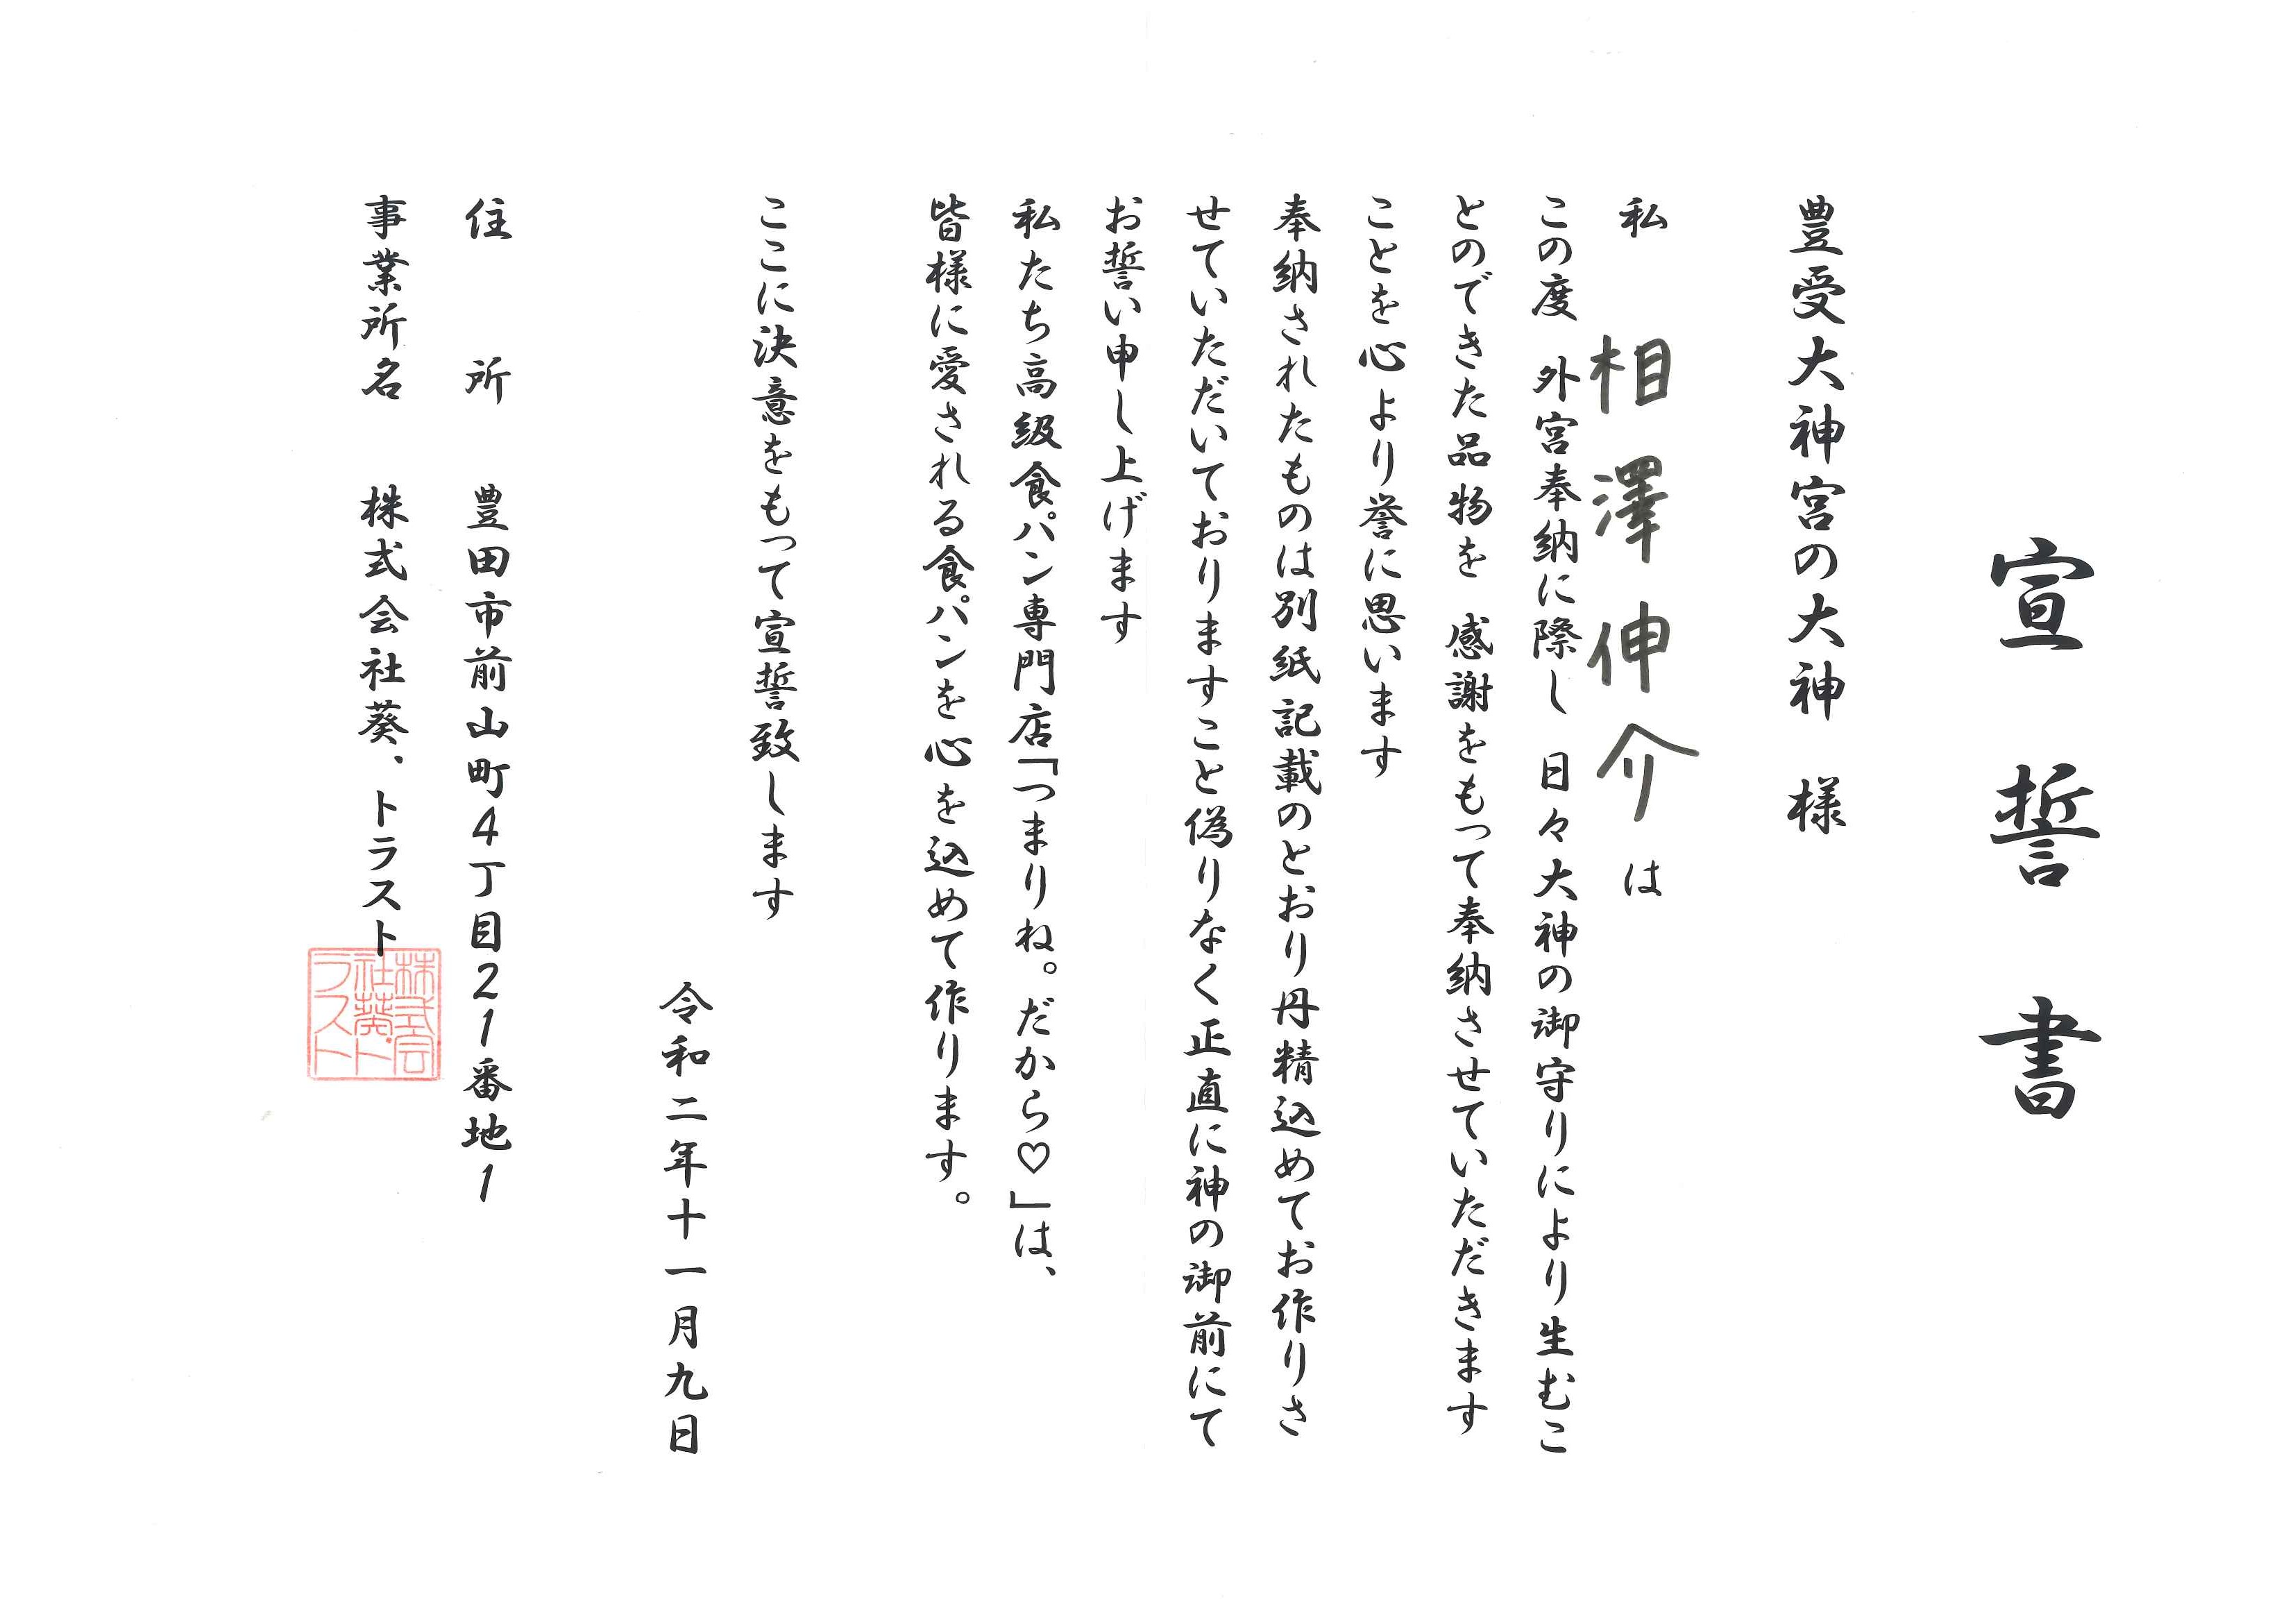 宣誓書
豊受大神宮の大神 様
私 相澤伸介 は
この度 外宮奉納に際し 日々大神の御守りにより生むこ
とのできた品物を 感謝をもって奉納させていただきます
ことを心より誉に思います
奉納されたものは別紙記載のとおり丹精込めてお作りさ
せていただいておりますこと偽りなく正直に神の御前にて
お誓い申し上げます
私たち高級食パン専門店「つまりね。だから♡」は、
皆様に愛される食パンを心を込めて作ります。
ここに決意をもって宣誓致します
令和二年十一月九日
住 所 豊田市前山町4丁目21番地1
事業所名 株式会社葵、トラスト
株式会
社葵、ト
ラスト